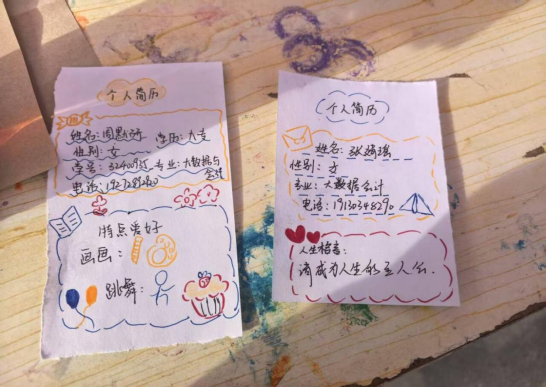 个人简历
姓名: 周默涵 学历: 大专
性别: 女
学号: 专业: 大数据与会计
电话:
特点爱好
画画:
跳舞:
个人简历
姓名: 张绮瑶
性别: 女
专业: 大数据会计
电话: 19130348290
人生格言:
请成为人生的主人公.